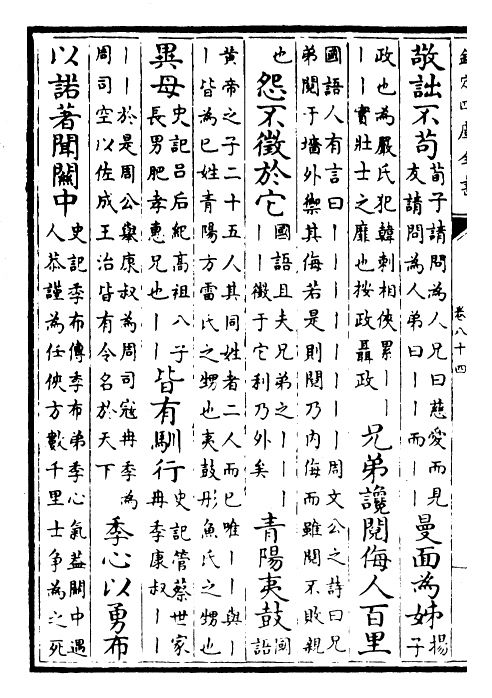 欽定四庫全書
卷八十四
敬詘不苟
荀子請問為人兄曰慈愛而見
友請問為人弟曰丨丨而丨丨
曼面為姊
揚
子
政也為嚴氏犯韓刺相俠累丨丨
丨丨實壯士之靡也按政聶政
兄弟讒鬩侮人百里
國語人有言曰丨丨丨丨丨丨丨丨周文公之詩曰兄
弟鬩于墻外禦其侮若是則鬩乃内侮而雖鬩不敗親
也
怨不徵於它
國語且夫兄弟之丨丨丨
丨丨徵于它利乃外矣
青陽夷鼓
國
語
黄帝之子二十五人其同姓者二人而已唯丨丨與丨
丨皆為己姓青陽方雷氏之甥也夷鼓彤魚氏之甥也
異母
史記吕后紀高祖八子
長男肥孝惠兄也丨丨
皆有馴行
史記管蔡世家
冉季康叔丨丨
丨丨於是周公舉康叔為周司寇冉季為
周司空以佐成王治皆有令名於天下
季心以勇布
以諾著聞關中
史記季布傳季布弟季心氣葢關中遇
人恭謹為任俠方數千里士爭為之死